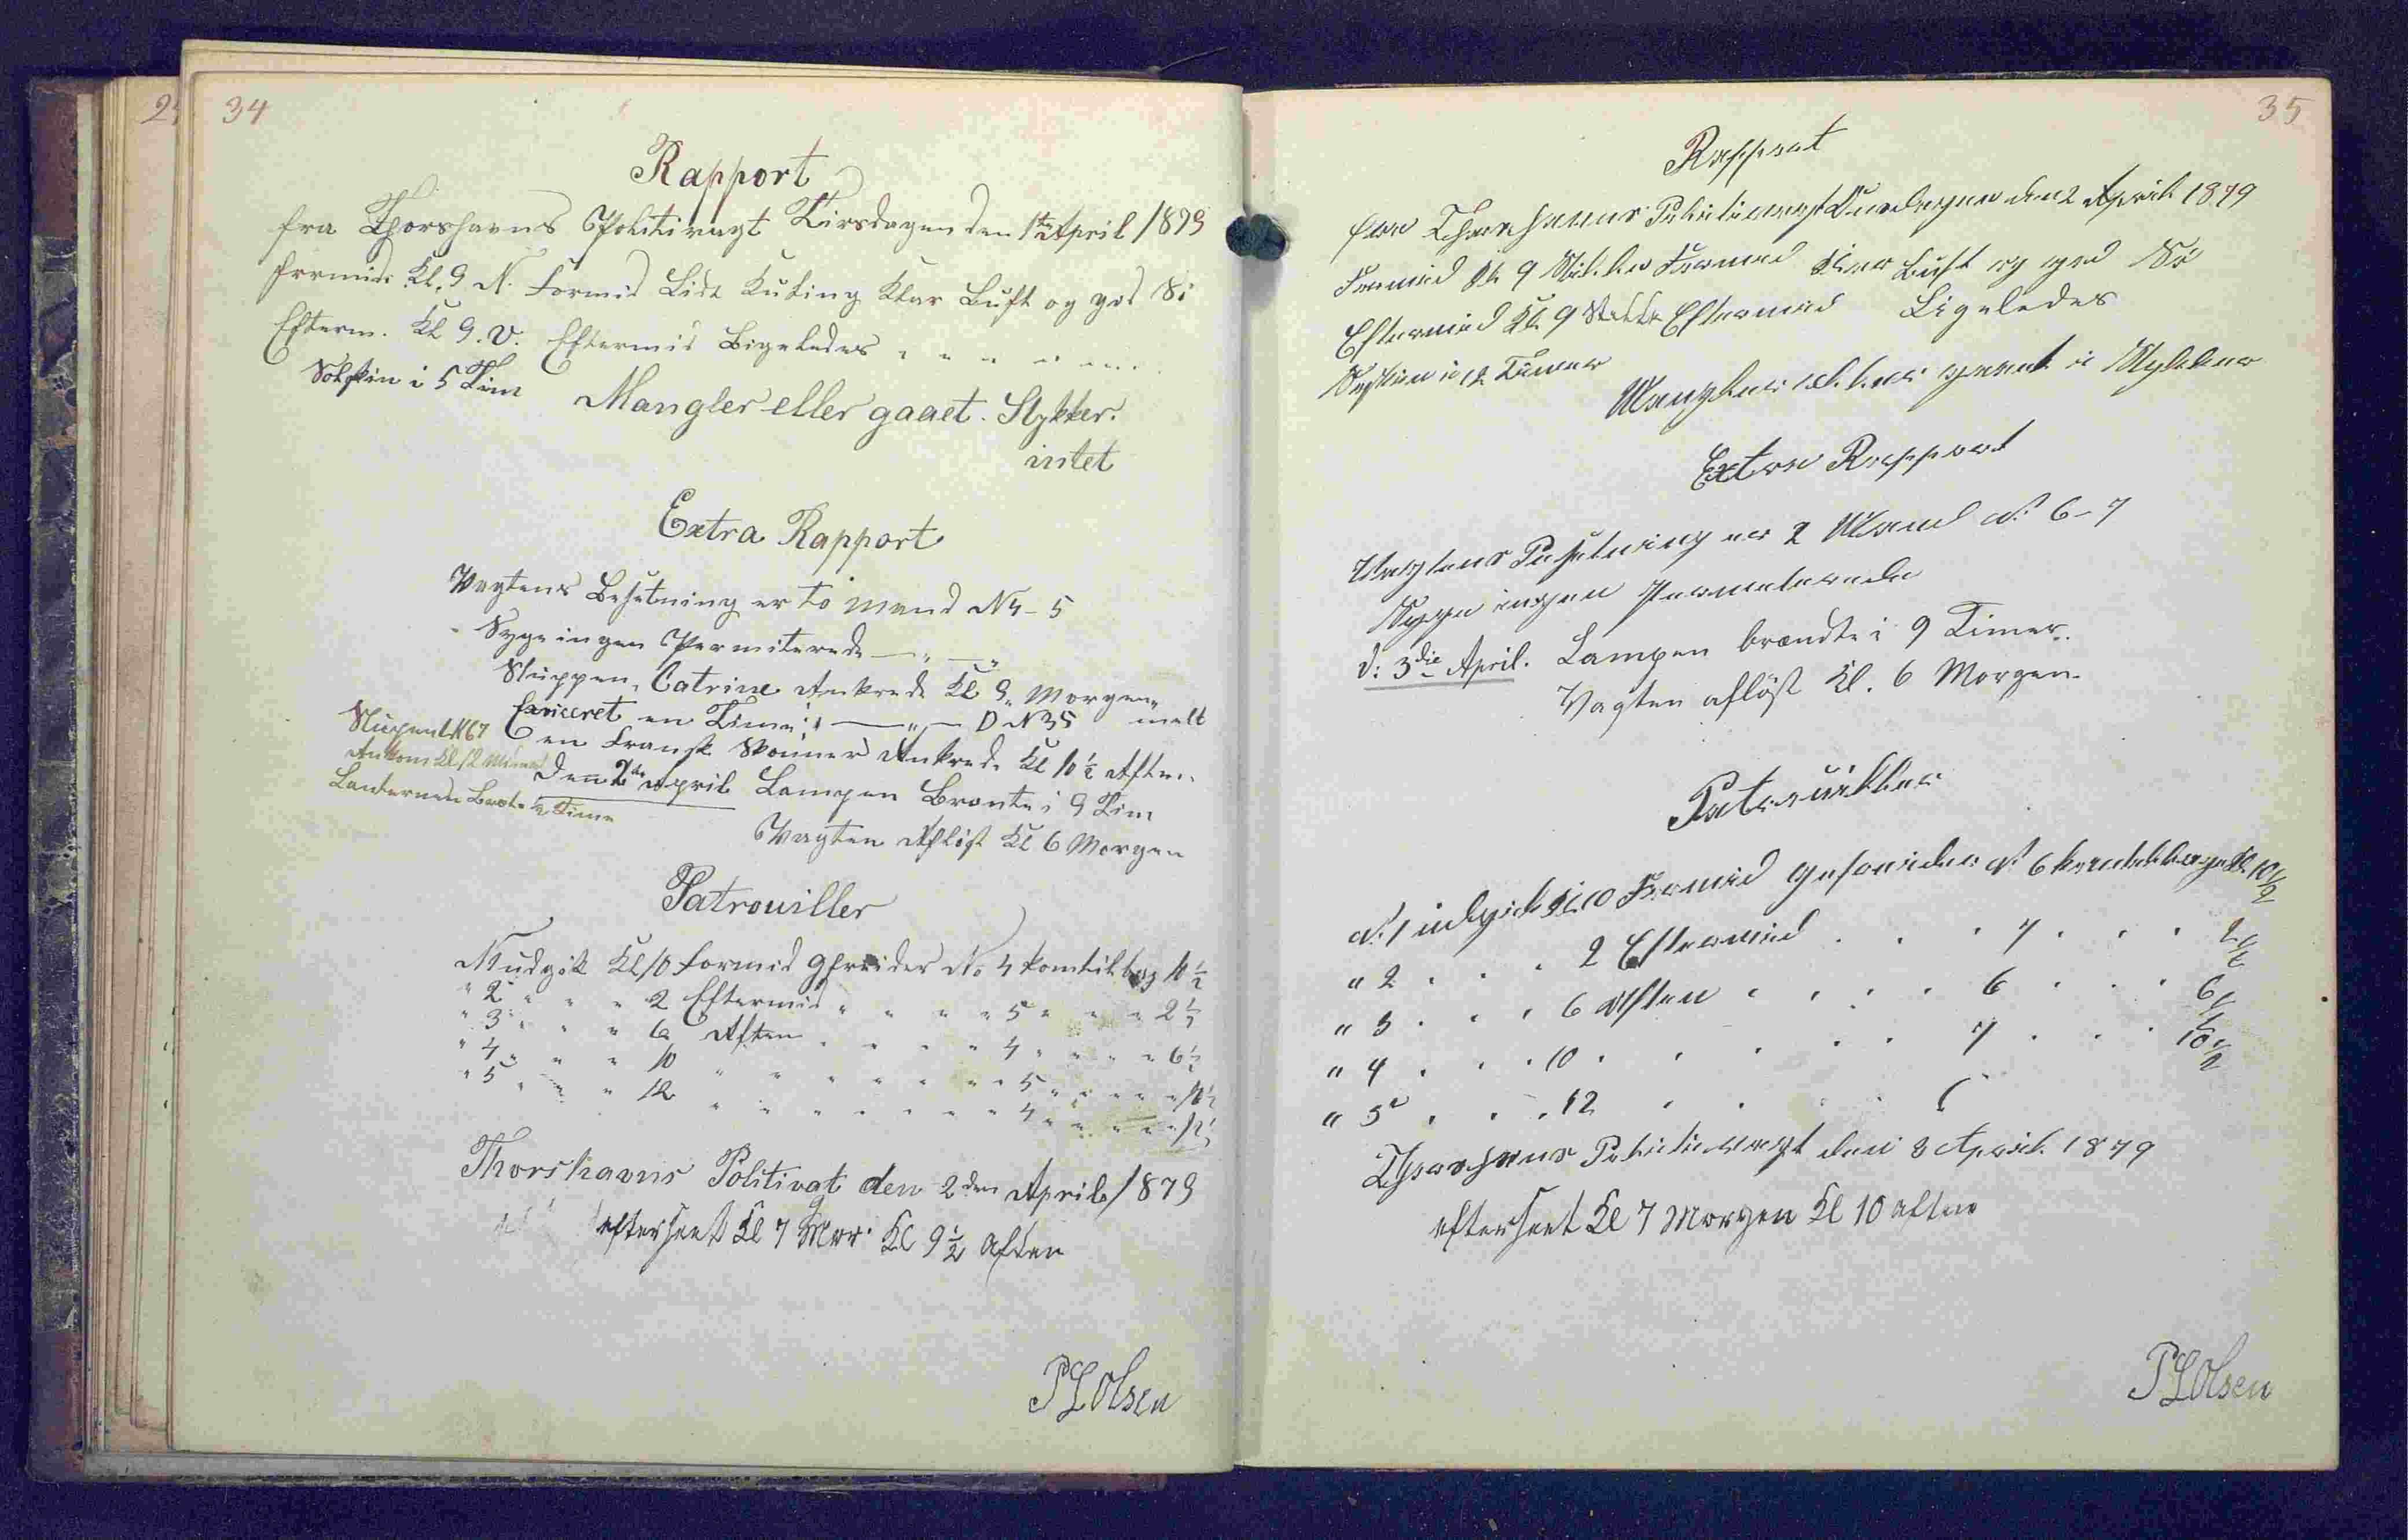 34
Rapport
fra Thorshavns Politivagt Tirsdagen den 1ste April 1879
Formid: Kl. 9 N. Formid Lidt Kuling Klar Luft og god Sö
Efterm. Kl 9. V. Eftermid Ligeledes " " " " "
Solskin i 5 Tim
Mangler eller gaaet i Stykker.
intet
Extra Rapport
Vagtens Besetning er to mand N 4 - 5
Syge ingen Permiterede — " — "
Sluppen, Catrine Ankrede Kl 9 Morgen
Exviceret en Time — " — D N 35 malt
en Fransk Skonner Ankrede Kl 10½ Aften
Slupen N 67
Ankom Kl 12
Lanternen Brente 2 Time
Den 2den April Lampen Brente i 9 Tim
Vagten Aflöst Kl 6 Morgen
Patrouiller
N 1 udgik Kl 10 Formid gfreider No 4 kom tilbag 10½
" 2 " " " 2 Eftermid " " " " 5 " " " 2½
" 3 " " " 6 Aften " " " " 4 " " " 6½
" 4 " " " 10 " " " " " 5 " " " 10½
" 5 " " " 12 " " " " " 4 " " " 12½
Thorshavns Politivagt den 2den April 1879
efterseet Kl 7 Mor. Kl 9½ Aften
P L Olsen
35
Rapport
fra Thorshavns Politivagt Onsdagen den 2 April 1879
Formid Kl. 9 Stille Formid Klar Luft og god Sö
Eftermid Kl. 9 Stille Eftermid Ligeledes
Solskin i 12 Timer
Mangler eller gaaet i Stykker
Extra Rapport
Vagtens Besetning er 2 Mand N: 6 - 7
Syge ingen Permeterede
d: 3die April. Lampen brændte i 9 Timer.
Vagten aflöst Kl. 6 Morgen
Patrouiller
N: 1 udgik Kl. 10 Formid Gefreider N: 6 kom tilbage Kl. 10½
" 2 . . . 2 Eftermid . . . 7 . . . 2½
" 3 . . . 6 Aften . . . . 6 . . . 6½
" 4 . . . 10 . . . . . 7 . . . 10½
" 5 . . . 12 . . . . 6
Thorshavns Politivagt den 3 April 1879
efterseet Kl 7 Morgen Kl 10 aften
P L Olsen